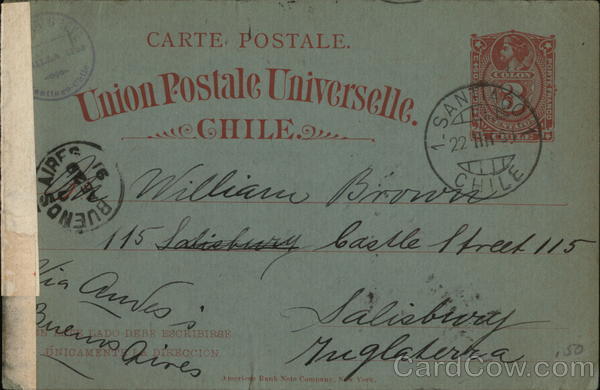 CARTE POSTALE.
Union Postale Universelle.
CHILE.
COLON
3
1-SANTIAGO
22
CHILE
BUENOS AIRES
16
91
Mr William Brown
115 Salisbury Castle Street 115
Salisbury
Inglaterra
Via Andes's
Buenos Aires
LADO DEBE ESCRIBIRSE
ÚNICAMENTE LA DIRECCION.
American Bank Note Company, New York.
.50
CardCow.com